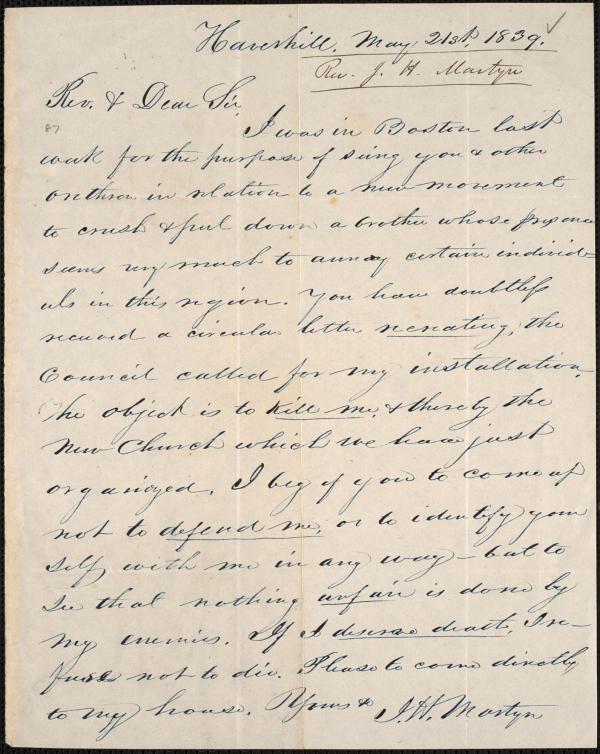 Haverhill. May 21st, 1839.
Rev. J. H. Martyn
Rev. & Dear Sir,
87
I was in Boston last
week for the purpose of seeing you & other
in relation to a new movement
to crush & put down a brother whose presence
seems very much to annoy certain individ=
uals in this region. You have doubtless
received a circular letter recreating, the
Council called for my installation.
The object is to kill me, & thereby the
New Church which we have just
organized. I beg of you to come up
not to defend me, or to identify your
self, with me in any way - but to
see that nothing unfair is done by
my enemies. If I deserve death, I re-
fuse not to die. Please to come directly
to my house. Yours &
J. H. Martyn